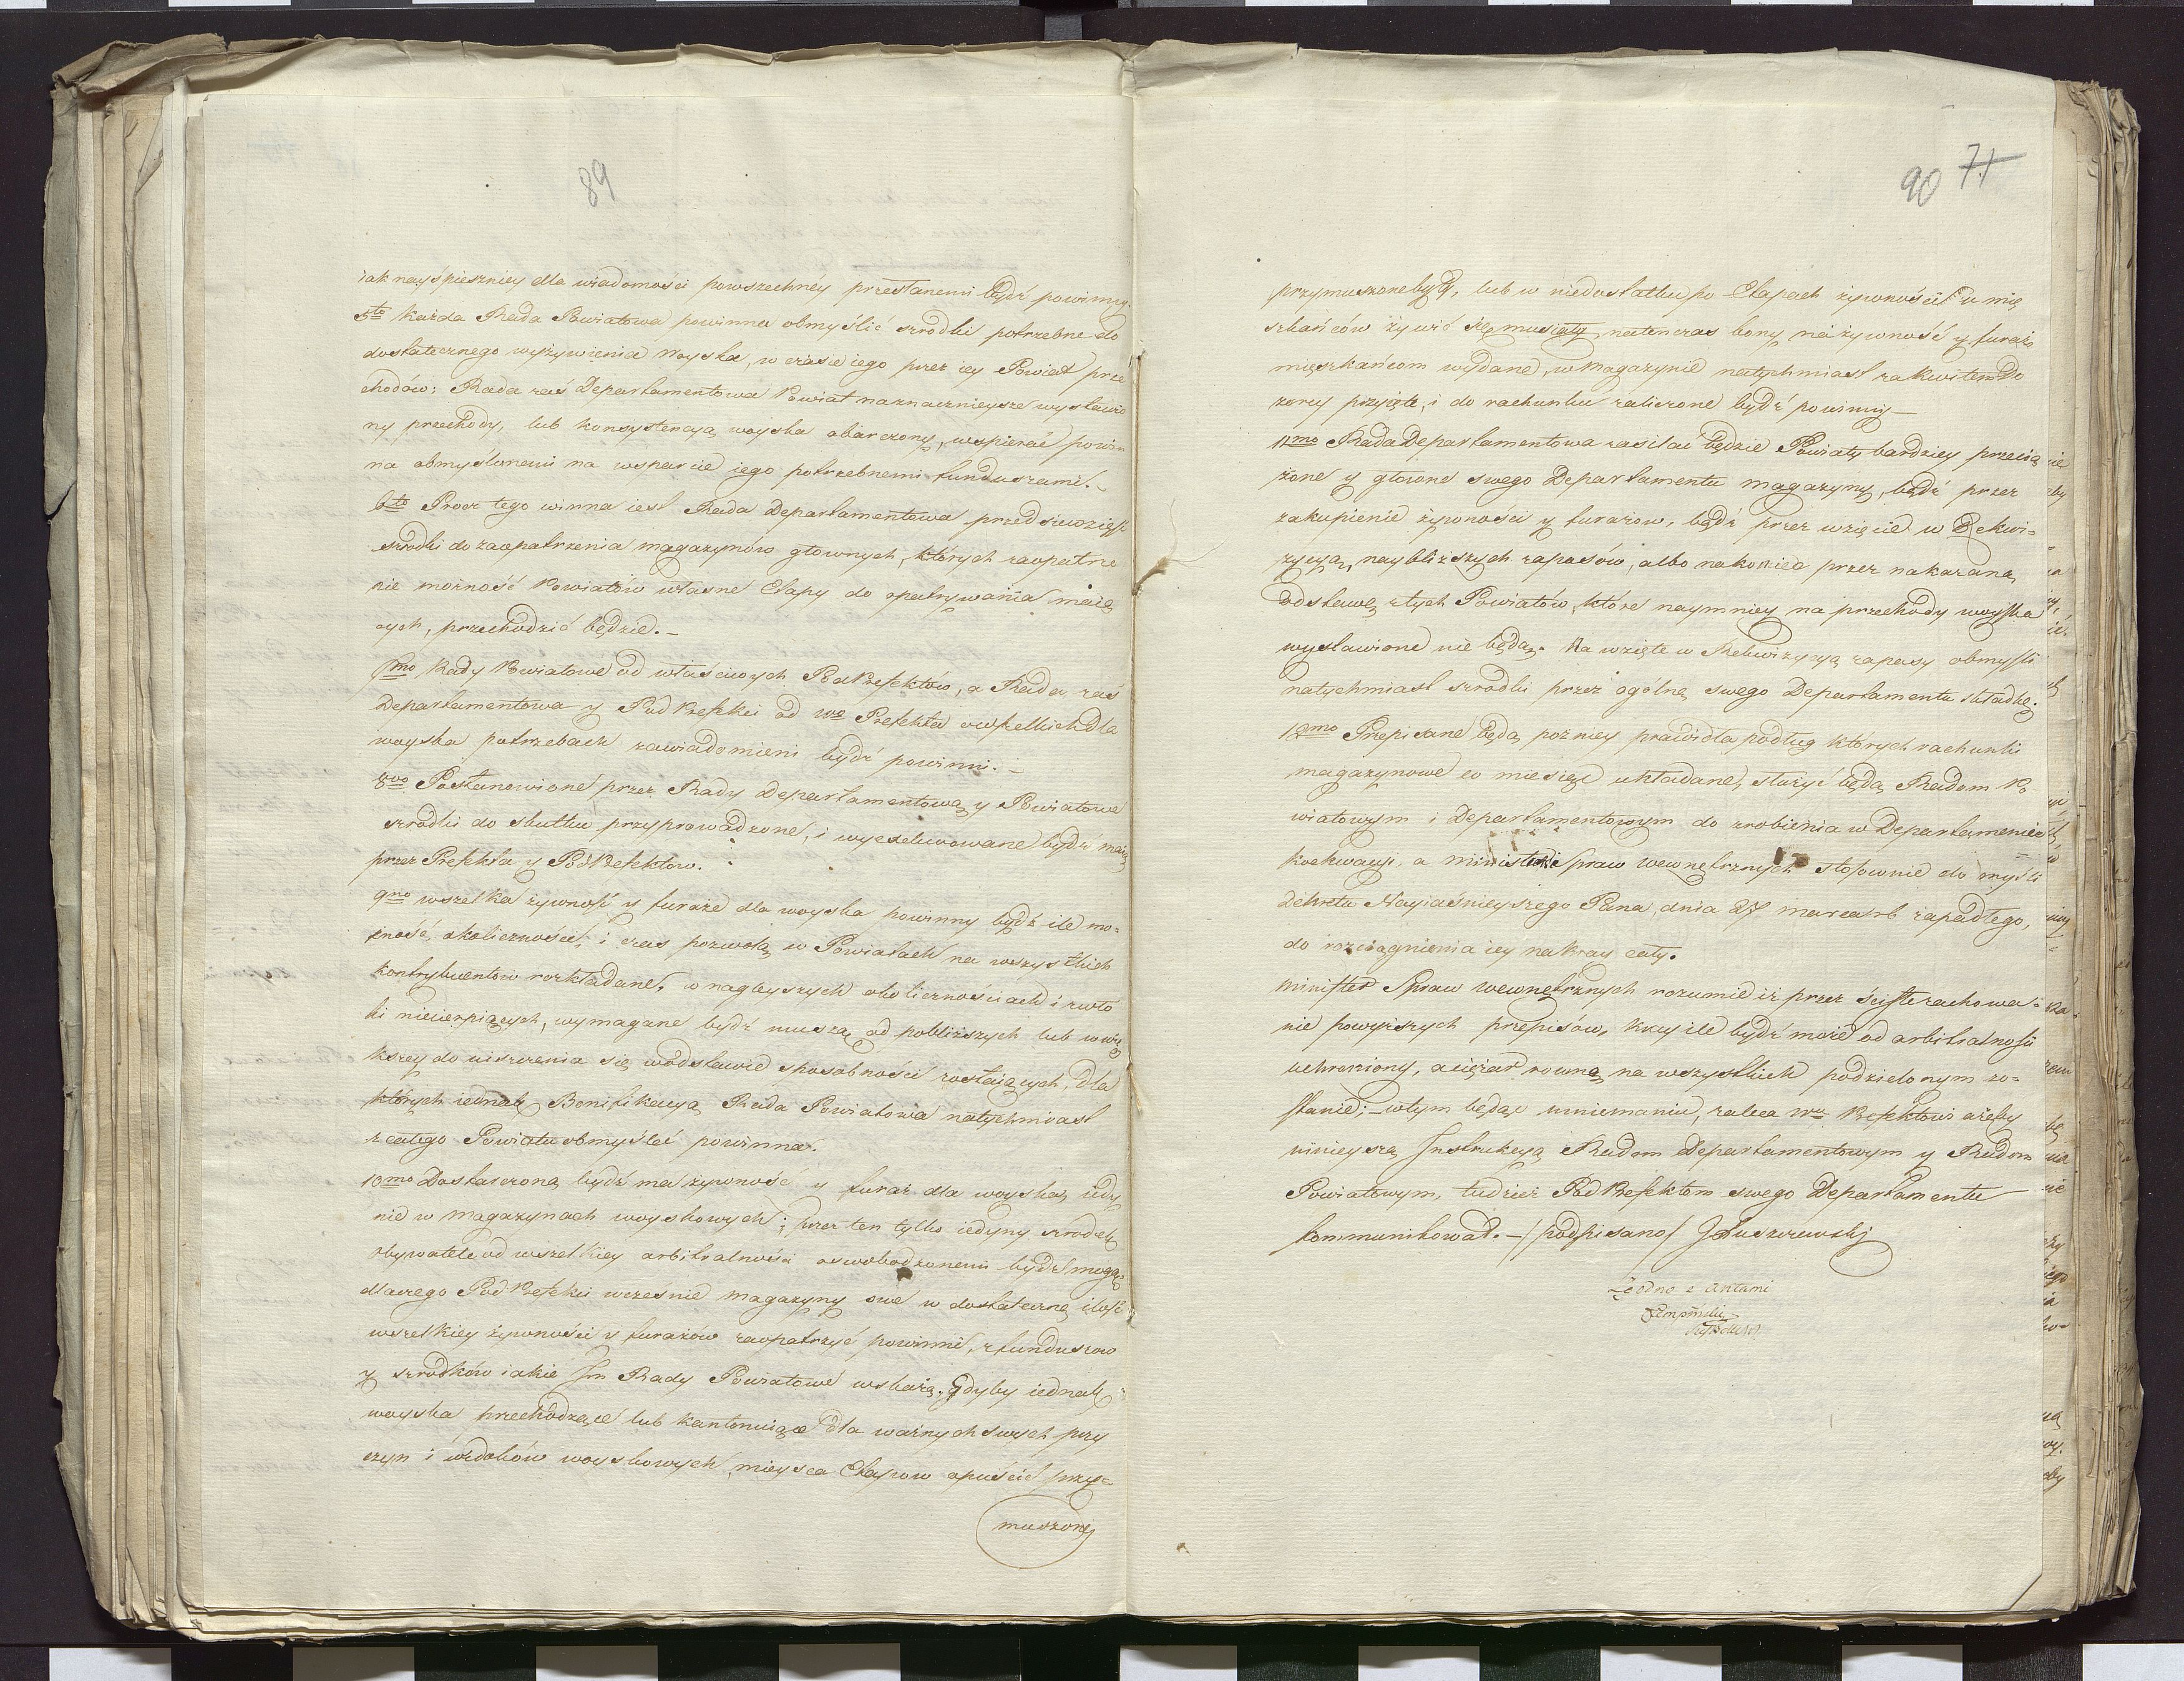 89
iak nayśpieszniey dla wiadomości powszechney przesłanemi bydź powinny.
5to każda Rada Powiatowa powinna obmyślić szrodki potrzebne do
dostatecznego wyżywienia woyska, w czasie iego przez iey Powiat prze
chodów: Rada zaś Departamentowa Powiat naznacznieysze wystawio
ny przechody, lub konsystencyą woyska obarczony, wspierać powin
na obmyślonemi na wsparcie iego potrzebnemi funduszami. -
6to Procz tego winna iest Rada Departamentowa przedsiewziąść
szrodki do zaopatrzenia magazynów głownych, których zaopatrze
nie możność Powiatów własne Etapy do opatrywania maią
cych, przechodzić będzie. -
7mo Rady Powiatowe od właściwych PodPrefektów, a Rada zaś
Departamentowa y PodPrefekci od Wo Prefekta owszelkich dla
woyska potrzebach zawiadomieni bydź powinni. -
8vo Postanowione przez Rady Departamentową y Powiatowe
szrodki do skutku przyprowadzone, i wyexekwowane bydź maią
przez Prefekta y PodPrefektow.
9no wszelka żywność y furaże dla woyska powinny bydź ile mo=
żność, okoliczności, i czas pozwolą w Powiatach na wszystkich
kontrybuentow rozkładane, w nagleyszych okolicznościach i zwło
ki niecierpiących, wymagane bydź muszą od pobliższych lub w wię
kszey do uiszczenia się wodstawie sposobności zostaiących, dla
których iednak Bonifikacyą Rada Powiatowa natychmiast
z całego Powiatu obmyśleć powinna.
10mo Dostarczoną bydź ma żywność y furaż dla woyska iedy
nie w magazynach woyskowych; przez ten tylko iedyny szrodek
obywatele od wszelkiey arbitralności oswobodzonemi bydź mogą
dlaczego PodPrefekci wcześnie magazyny swe w dostateczną ilość
wszelkiey żywności y furażów zaopatrzyć powinni, z funduszow
y szrodków iakie Im Rady Powiatowe wskażą. Gdyby iednak
woyska przechodzące lub kantonuiące dla ważnych swych przy
czyn i widoków woyskowych mieysca Etapow opuścić przy=
muszone
90 71
przymuszone były, lub w niedostatku po Etapach żywności u mię
szkańców żywić się musiały, natenczas bony na żywność y furaż
mięszkańcom wydane, w Magazynie natychmiast za kwitem Do
zorcy przyięte, i do rachunku zaliczone bydź powinny -
11mo Rada Departamentowa zasilać będzie Powiaty bardziey przecią
żone y głowne swego Departamentu magazyny, bądź przez
zakupienie żywności y furażow, bądź przez wzięcie w Rekwi=
zycyą, naybliższych zapasów, albo nakoniec przez nakazaną
odstawę z tych Powiatów, które naymniey na przechody woyska
wystawione nie będą. Na wzięte w Rekwizycyą zapasy obmyśli
natychmiast szrodki przez ogólną swego Departamentu składkę.
12mo Przepisane będą pozniey prawidła podług których rachunki
magazynowe co miesiąc układane, służyć będą Radom Po
wiatowym i Departamentowym do zrobienia w Departamencie
koekwacyi, a ministrowi Spraw wewnętrznych stosownie do myśli
Dekretu Nayiaśnieyszego Pana, dnia 27 marca rb zapadłego,
do rozciągnienia iey na kray cały.
Minister Spraw wewnętrznych rozumie iż przez ścisłe zachowa=
nie powyższych przepisów, kray ile bydź może od arbitralności
uchroniony, a ciężar rowno na wszystkich podzielonym zo=
stanie; - wtym będąc mniemaniu, zaleca Wu Prefektowi ażeby
ninieyszą Instrukcyą Radom Departamentowym y Radom
Powiatowym, tudzież PodPrefektom swego Departamentu
kommunikował. - /podpisano/ J Łuszczewski
Zgodno z aktami